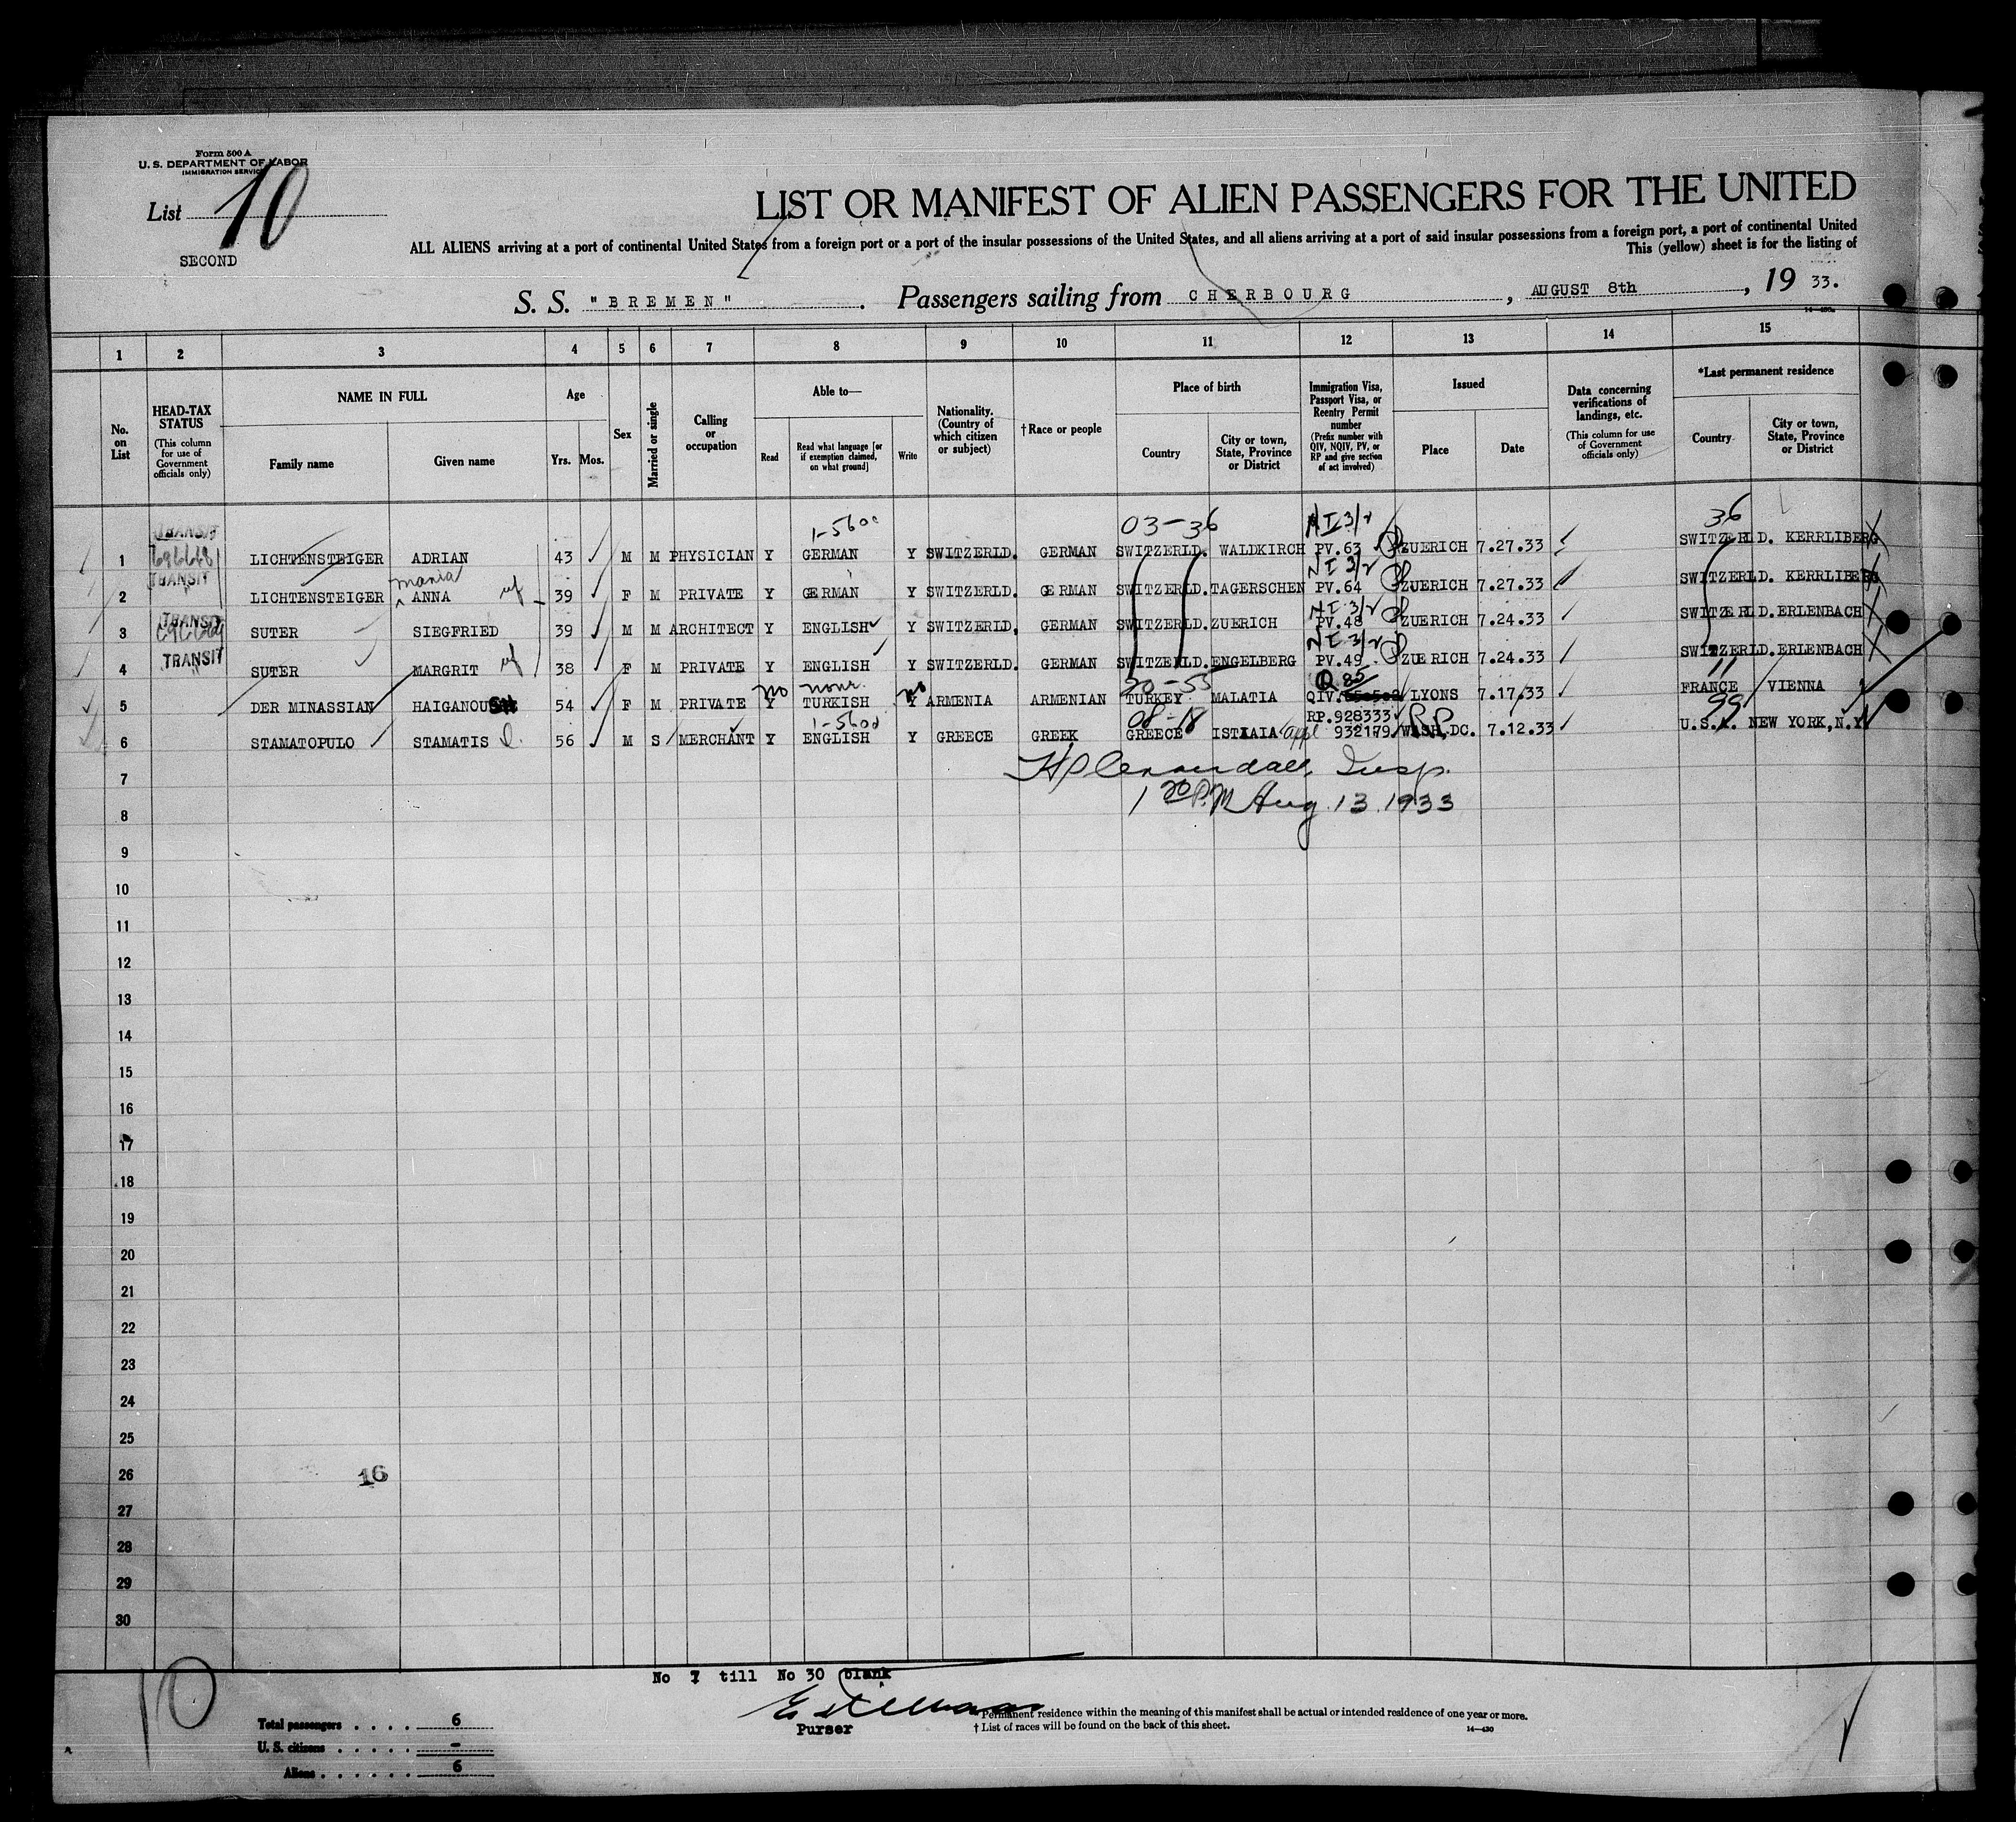 Form 500 A
U. S. DEPARTMENT OF LABOR
IMMIGRATION SERVICE
List 10
SECOND
LIST OR MANIFEST OF ALIEN PASSENGERS FOR THE UNITED
ALL ALIENS arriving at a port of continental United States from a foreign port or a port of the insular possessions of the United States, and all aliens arriving at a port of said insular possessions from a foreign port, a port of continental United
This (yellow) sheet is for the listing of
S. S. "BREMEN". Passengers sailing from CHERBOURG, AUGUST 8th, 19 33.
14-430a
1 2 3 4 5 6 7 8 9 10 11 12 13 14 15
No. on List
HEAD-TAX STATUS
(This column for use of Government officials only)
NAME IN FULL
Family name
Given name
Age
Yrs. Mos.
Sex
Married or single
Calling or occupation
Able to—
Read
Read what language [or if exemption claimed, on what ground]
Write
Nationality. (Country of which citizen or subject)
†Race or people
Place of birth
Country
City or town, State, Province or District
Immigration Visa, Passport Visa, or Reentry Permit number
(Prefix number with QIV, NQIV, PV, or RP and give section of act involved)
Issued
Place
Date
Data concerning verifications of landings, etc.
(This column for use of Government officials only)
*Last permanent residence
Country
City or town, State, Province or District
TRANSIT 1-5600 03-36 NI 3/2 36
1 696668 LICHTENSTEIGER ADRIAN 43 M M PHYSICIAN Y GERMAN Y SWITZERLD. GERMAN SWITZERLD. WALDKIRCH PV.63 ZUERICH 7.27.33 SWITZERLD. KERRLIBERG
TRANSIT Maria NI 3/2
2 " LICHTENSTEIGER ANNA wf 39 F M PRIVATE Y GERMAN Y SWITZERLD. GERMAN SWITZERLD. TAGERSCHEN PV.64 ZUERICH 7.27.33 SWITZERLD. KERRLIBERG
TRANSIT NI 3/2
3 696669 SUTER SIEGFRIED 39 M M ARCHITECT Y ENGLISH Y SWITZERLD. GERMAN SWITZERLD. ZUERICH PV.48 ZUERICH 7.24.33 SWITZERLD. ERLENBACH
TRANSIT NI 3/2
4 " SUTER MARGRIT wf 38 F M PRIVATE Y ENGLISH Y SWITZERLD. GERMAN SWITZERLD. ENGELBERG PV.49 ZUERICH 7.24.33 SWITZERLD. ERLENBACH
no none no 20-55 Q 85 11
5 DER MINASSIAN HAIGANOUSH 54 F M PRIVATE Y TURKISH Y ARMENIA ARMENIAN TURKEY MALATIA QIV. LYONS 7.17.33 FRANCE VIENNA
1-5600 08-18 RP.928333 RP 99
6 STAMATOPULO STAMATIS 56 M S MERCHANT Y ENGLISH Y GREECE GREEK GREECE ISTIAIA appl 932179 WASH, DC. 7.12.33 U.S.A. NEW YORK, N.Y.
7 Insp.
8 1 20 P.M Aug. 13. 1933
9
10
11
12
13
14
15
16
17
18
19
20
21
22
23
24
25
26 16
27
28
29
30
No 7 till No 30 blank
10
Purser
Total passengers . . . . 6
U. S. citizens . . . . . -
Aliens . . . . . . 6
Permanent residence within the meaning of this manifest shall be actual or intended residence of one year or more.
† List of races will be found on the back of this sheet. 14-430